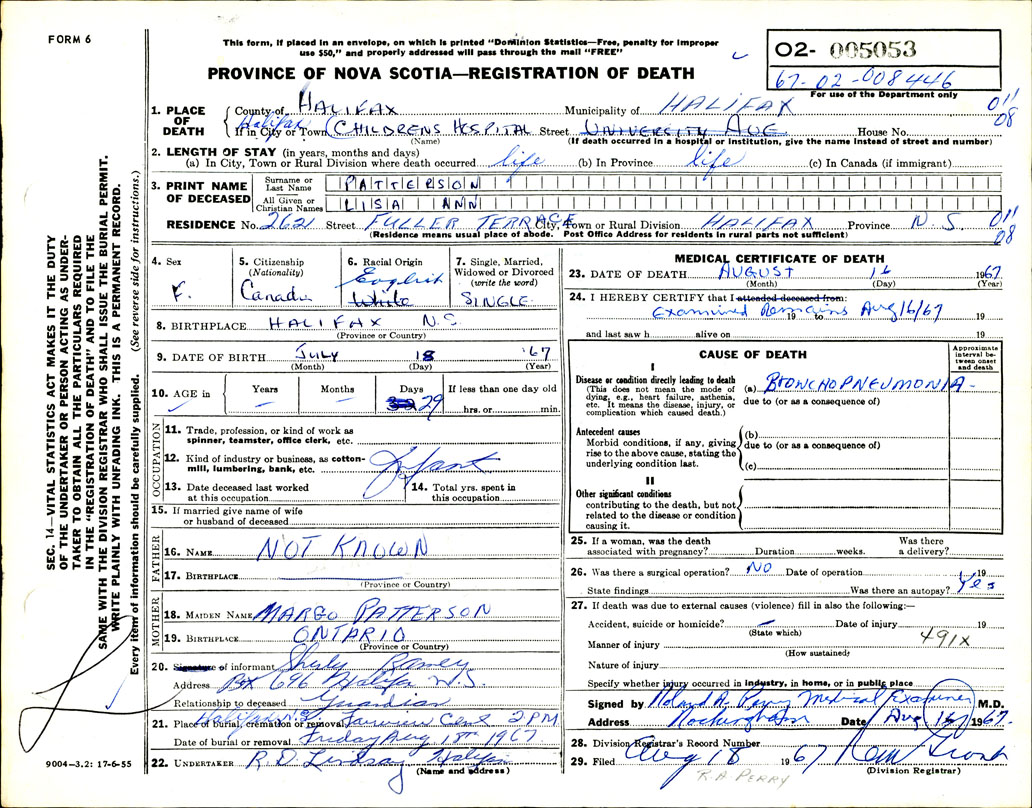 FORM 6
This form, if placed in an envelope, on which is printed "Dominion Statistics—Free, penalty for improper
use $50," and properly addressed will pass through the mail "FREE"
PROVINCE OF NOVA SCOTIA—REGISTRATION OF DEATH
O2- 005053
67-02-008446
For use of the Department only
SEC. 14—VITAL STATISTICS ACT MAKES IT THE DUTY
OF THE UNDERTAKER OR PERSON ACTING AS UNDER-
TAKER TO OBTAIN ALL THE PARTICULARS REQUIRED
IN THE "REGISTRATION OF DEATH" AND TO FILE THE
SAME WITH THE DIVISION REGISTRAR WHO SHALL ISSUE THE BURIAL PERMIT.
WRITE PLAINLY WITH UNFADING INK. THIS IS A PERMANENT RECORD.
Every item of information should be carefully supplied. (See reverse side for instructions.)
1. PLACE OF DEATH
County of HALIFAX Municipality of HALIFAX 011 08
If in City or Town Halifax (CHILDRENS HOSPITAL Street UNIVERSITY AVE House No.
(Name) (If death occurred in a hospital or institution, give the name instead of street and number)
2. LENGTH OF STAY (in years, months and days)
(a) In City, Town or Rural Division where death occurred life (b) In Province life (c) In Canada (if immigrant)
3. PRINT NAME OF DECEASED
Surname or Last Name PATTERSON
All Given or Christian Names LISA ANN
RESIDENCE No. 2621 Street FULLER TERRACE City, Town or Rural Division HALIFAX Province N.S. 011 08
(Residence means usual place of abode. Post Office Address for residents in rural parts not sufficient)
4. Sex F.
5. Citizenship (Nationality) Canada
6. Racial Origin English White
7. Single, Married, Widowed or Divorced (write the word) SINGLE
8. BIRTHPLACE HALIFAX N.S.
(Province or Country)
9. DATE OF BIRTH JULY 18 '67
(Month) (Day) (Year)
10. AGE in Years — Months — Days 29 If less than one day old hrs. or min.
OCCUPATION
11. Trade, profession, or kind of work as spinner, teamster, office clerk, etc.
12. Kind of industry or business, as cotton-mill, lumbering, bank, etc. Infant
13. Date deceased last worked at this occupation
14. Total yrs. spent in this occupation
15. If married give name of wife or husband of deceased
FATHER
16. NAME NOT KNOWN
17. BIRTHPLACE
(Province or Country)
MOTHER
18. MAIDEN NAME MARGO PATTERSON
19. BIRTHPLACE ONTARIO
(Province or Country)
20. Signature of informant
Address Bx 696 Halifax N.S.
Relationship to deceased Guardian
21. Place of burial, cremation or removal Halifax N.S. 2 PM
Date of burial or removal Friday Aug 18th 1967
22. UNDERTAKER R.D. Lindsay Halifax
(Name and address)
9004—3.2: 17-6-55
MEDICAL CERTIFICATE OF DEATH
23. DATE OF DEATH AUGUST 16 1967
(Month) (Day) (Year)
24. I HEREBY CERTIFY that I attended deceased from:
Examined Remains Aug 16/67 19 to 19
and last saw h alive on 19
CAUSE OF DEATH
Approximate interval between onset and death
I
Disease or condition directly leading to death
(This does not mean the mode of dying, e.g., heart failure, asthenia, etc. It means the disease, injury, or complication which caused death.)
(a) BRONCHOPNEUMONIA -
due to (or as a consequence of)
Antecedent causes
Morbid conditions, if any, giving rise to the above cause, stating the underlying condition last.
(b)
due to (or as a consequence of)
(c)
II
Other significant conditions
contributing to the death, but not related to the disease or condition causing it.
25. If a woman, was the death associated with pregnancy? Duration weeks. Was there a delivery?
26. Was there a surgical operation? NO Date of operation 19
State findings Was there an autopsy? Yes
27. If death was due to external causes (violence) fill in also the following:—
Accident, suicide or homicide? — Date of injury 19
(State which)
Manner of injury 491X
(How sustained)
Nature of injury
Specify whether injury occurred in industry, in home, or in public place
Signed by Roland A. Perry Medical Examiner M.D.
Address Rockingham Date Aug 16 1967.
28. Division Registrar's Record Number
29. Filed Aug 18 1967
(Division Registrar)
R.A. PERRY